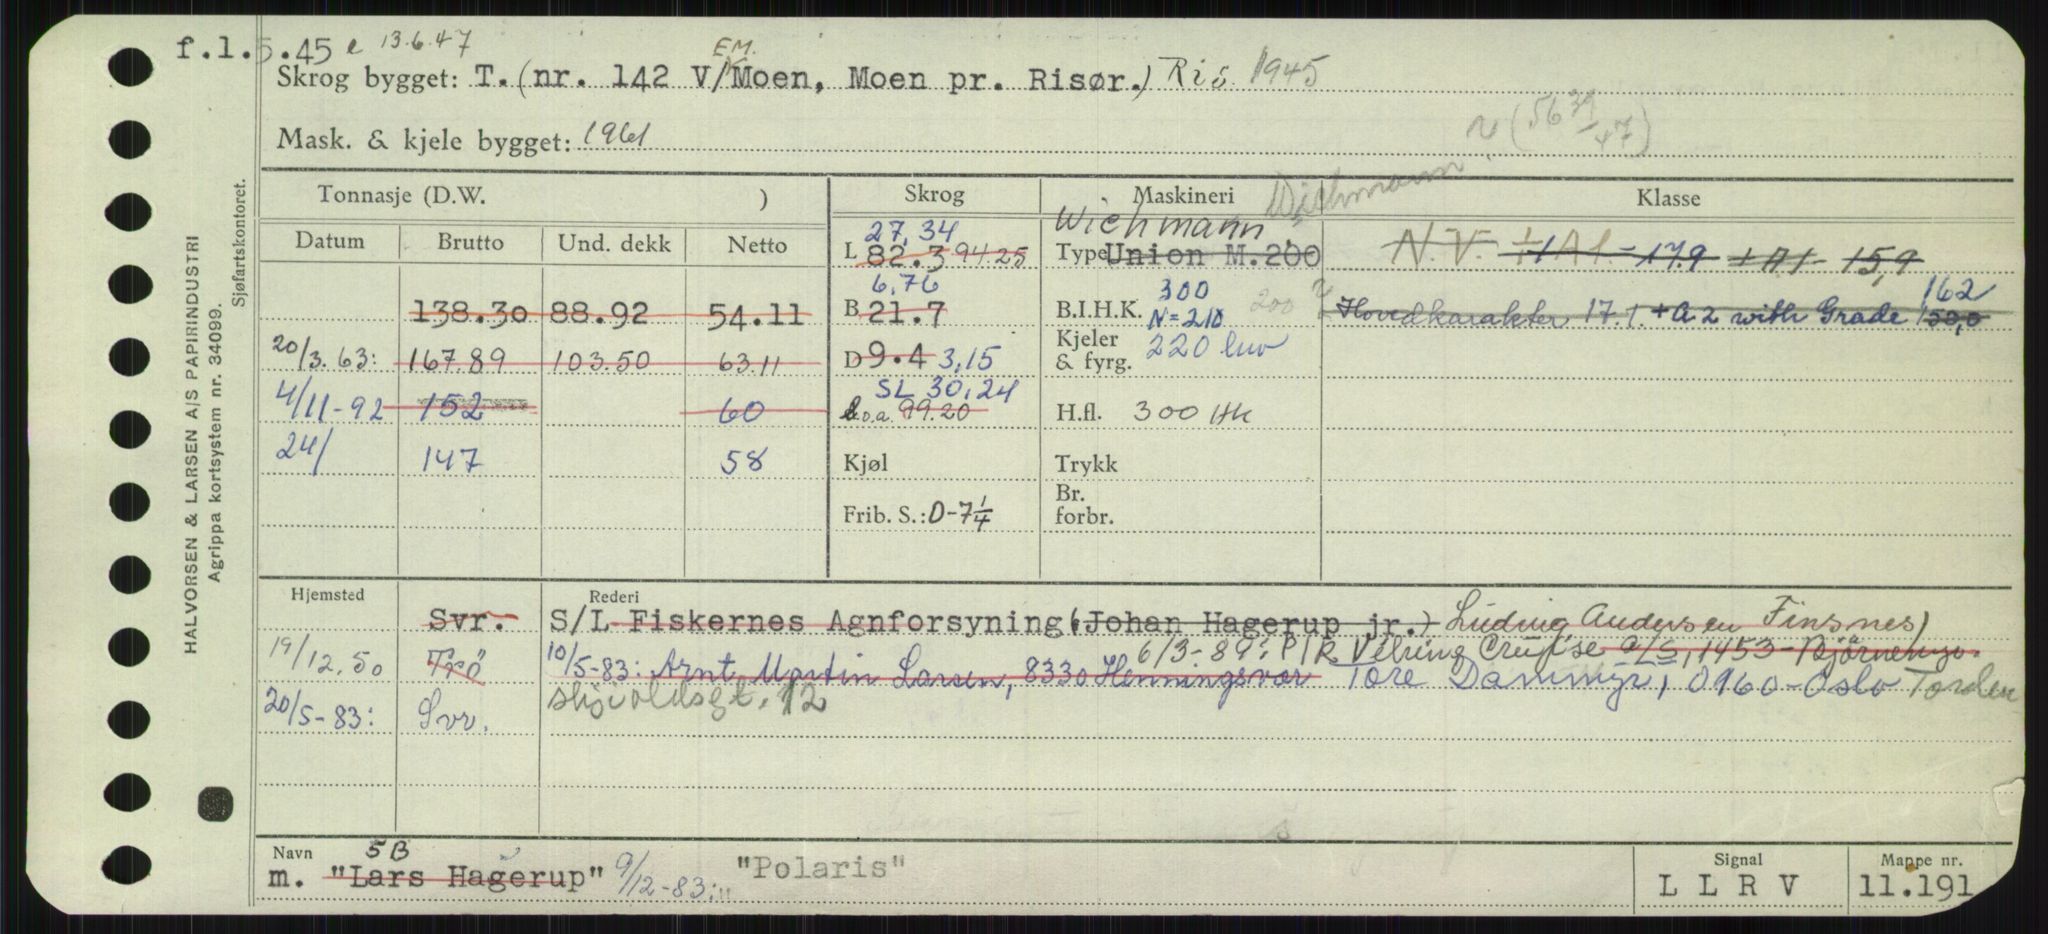 f.l.5.45 e 13.6.47
EM.
Skrog bygget: T. (nr. 142 V/Moen, Moen pr. Risør.) Ris 1945
Mask. & kjele bygget: 1961
(56 39/47)
Tonnasje (D.W. )
Skrog
Maskineri
Wichmann
Klasse
Datum
Brutto
Und. dekk
Netto
27,34
L 82.3 94.25
Wichmann
Type Union M.200
N.V. +1A1-17.9 +A1- 15,9
138.30 88.92 54.11
6,76
B 21.7
300
B.I.H.K. N=210 200
162
Hovedkarakter 17.1. +A2 with Grade 150,0
20/3.63: 167.89 103.50 63.11
D 9.4 3,15
Kjeler & fyrg. 220 luv
4/11-92 152 60
SL 30,24
L.o.a. 99.20
H.fl. 300 Hk
24/ 147 58
Kjøl
Trykk
Frib. S.: 0-7 1/4
Br. forbr.
Hjemsted
Rederi
Svr. S/L Fiskernes Agnforsyning (Johan Hagerup jr.) Ludvig Andersen Finsnes)
6/3-89: P/R Velring Cruise a/s, 1453-
19/12.50 Trö 10/5-83: Arnt Martin Larsen, 8330 Henningsvær Tore Dammyr, 0960-Oslo Torden
skjoldsgt. 12
20/5-83: Svr.
Navn 5B
m. "Lars Hagerup" 9/12-83: "Polaris"
Signal
LLRV
Mappe nr.
11.191
HALVORSEN & LARSEN A/S PAPIRINDUSTRI
Agrippa kortsystem nr. 34099.
Sjøfartskontoret.